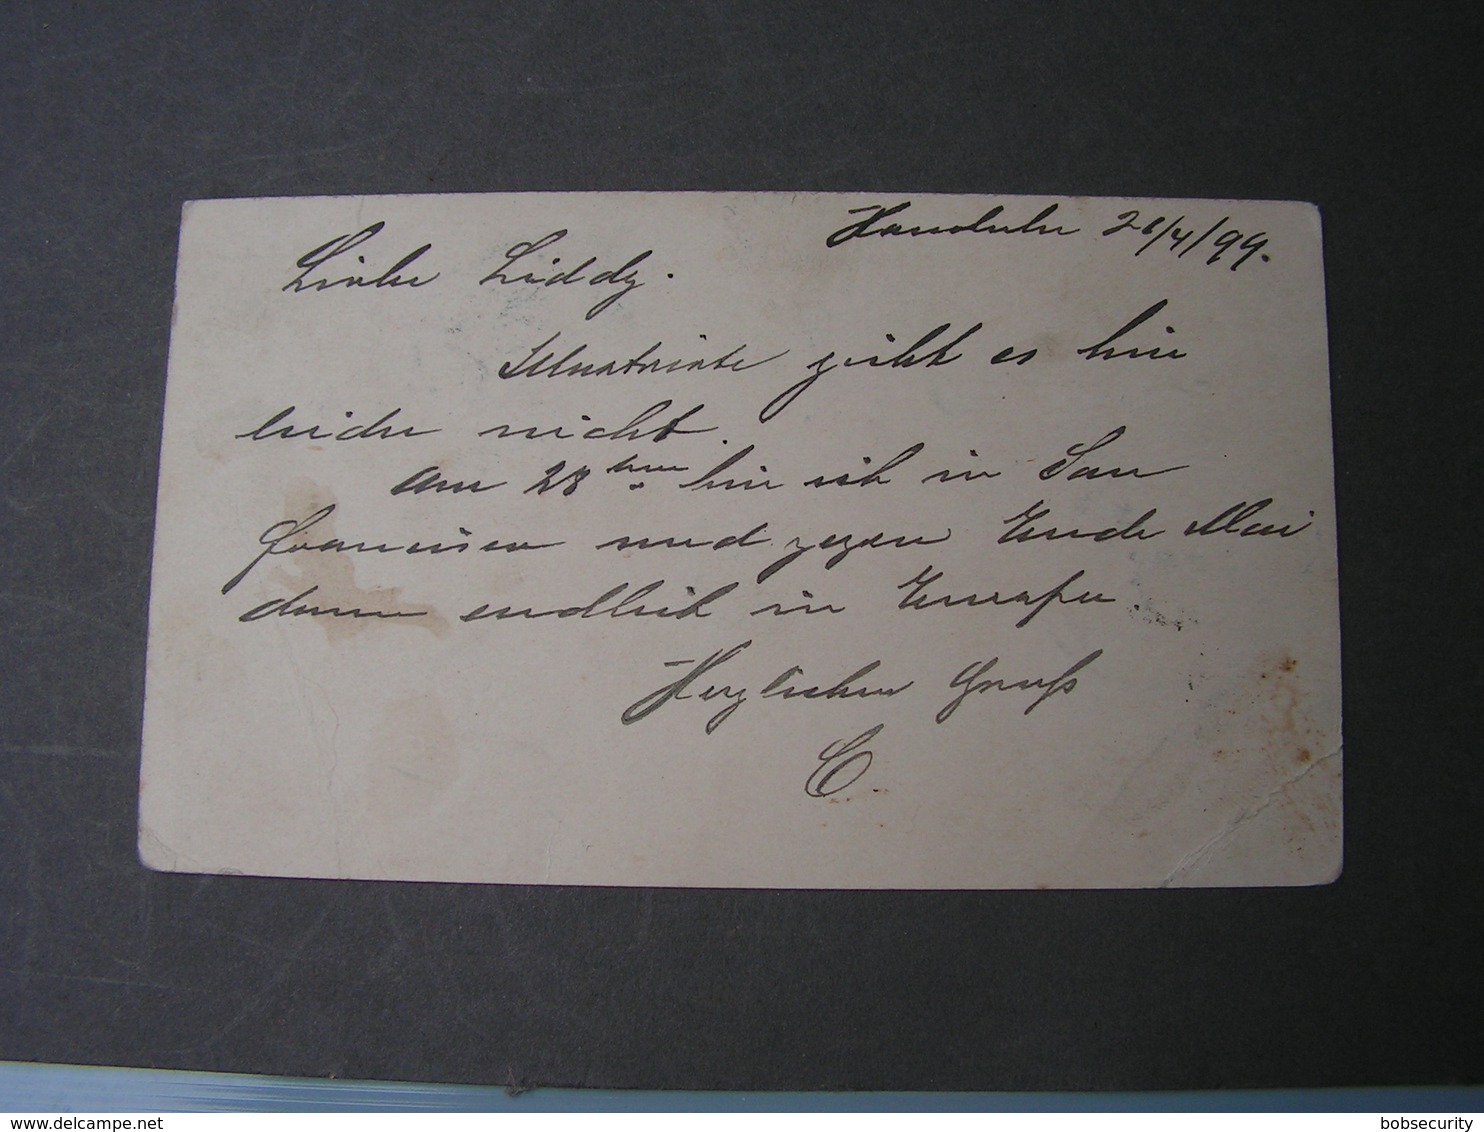 Honolulu 21/4/99.
Liebe Liddy.
Illustrirte giebt es hier
leider nicht.
Am 28ten bin ich in San
Francisco und gegen Ende Mai
dann endlich in Europa.
Herzlichen Gruß
C
bobsecurity